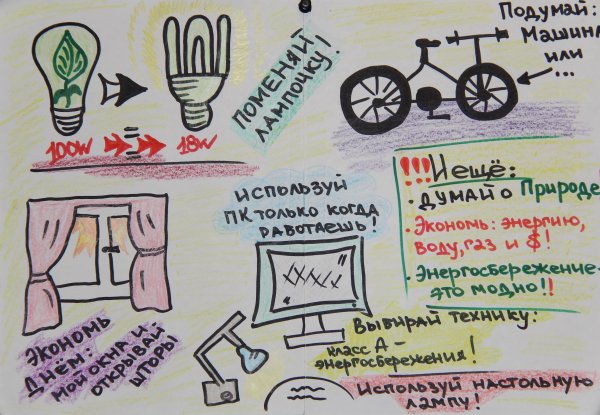 ПОМЕНЯЙ
ЛАМПОЧКУ!
100W
18W
Подумай:
Машина
или
...
!!!И ещё:
• ДУМАЙ О Природе
• Экономь: энергию,
воду, газ и $!
• Энергосбережение-
это модно!!
используй
ПК только когда
РАБОТАЕШЬ!
Экономь
Днём:
мой окна и
открывай
шторы
Выбирай технику:
класс А-
энергосбережения!
Используй настольную
лампу!